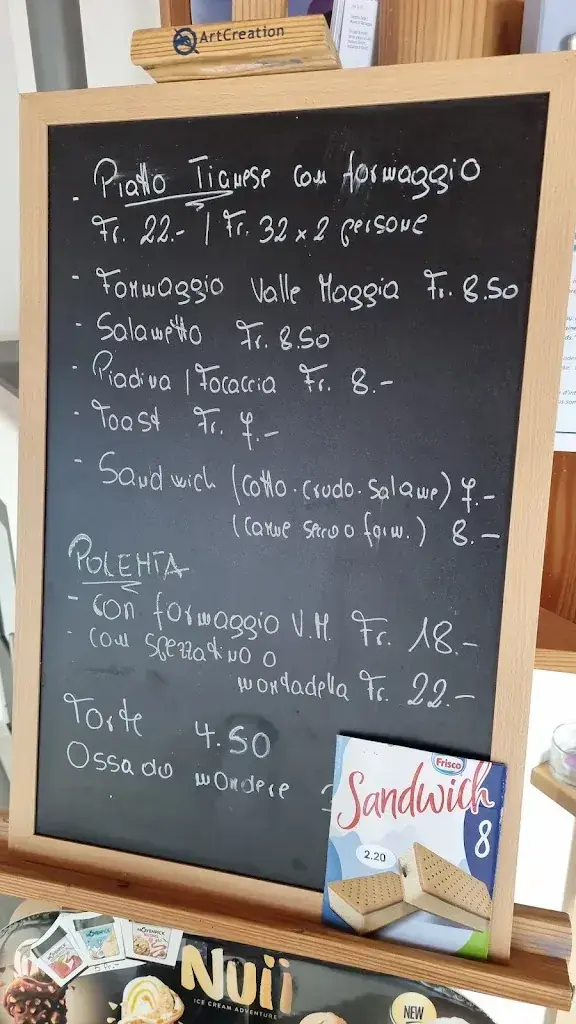 ArtCreation
- Piatto Ticinese con formaggio
Fr. 22.- / Fr. 32 x 2 persone
- Formaggio Valle Maggia Fr. 8.50
- Salametto Fr. 8.50
- Piadina / Focaccia Fr. 8.-
- Toast Fr. 7.-
- Sandwich (cotto. crudo. salame) 7.-
(carne secca o form.) 8.-
POLENTA
- con formaggio V.M. Fr. 18.-
- con spezzatino o
mortadella Fr. 22.-
Torte 4.50
Ossa da mordere
Frisco
Sandwich
8
2.20
MÖVENPICK
Nuii
ICE CREAM ADVENTURE
NEW